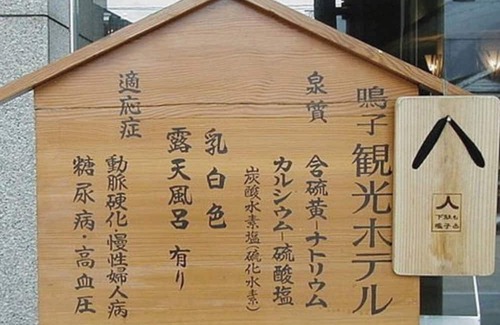 鳴子観光ホテル
泉質
含硫黄-ナトリウム
カルシウム-硫酸塩
炭酸水素塩(硫化水素)
乳白色
露天風呂 有り
適応症
動脈硬化・慢性婦人病
糖尿病・高血圧
下駄も
鳴子